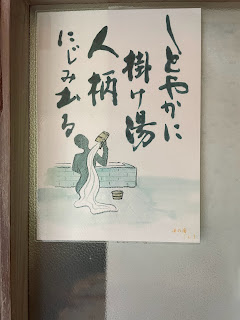 しとやかに
掛け湯
人柄
にじみ出る